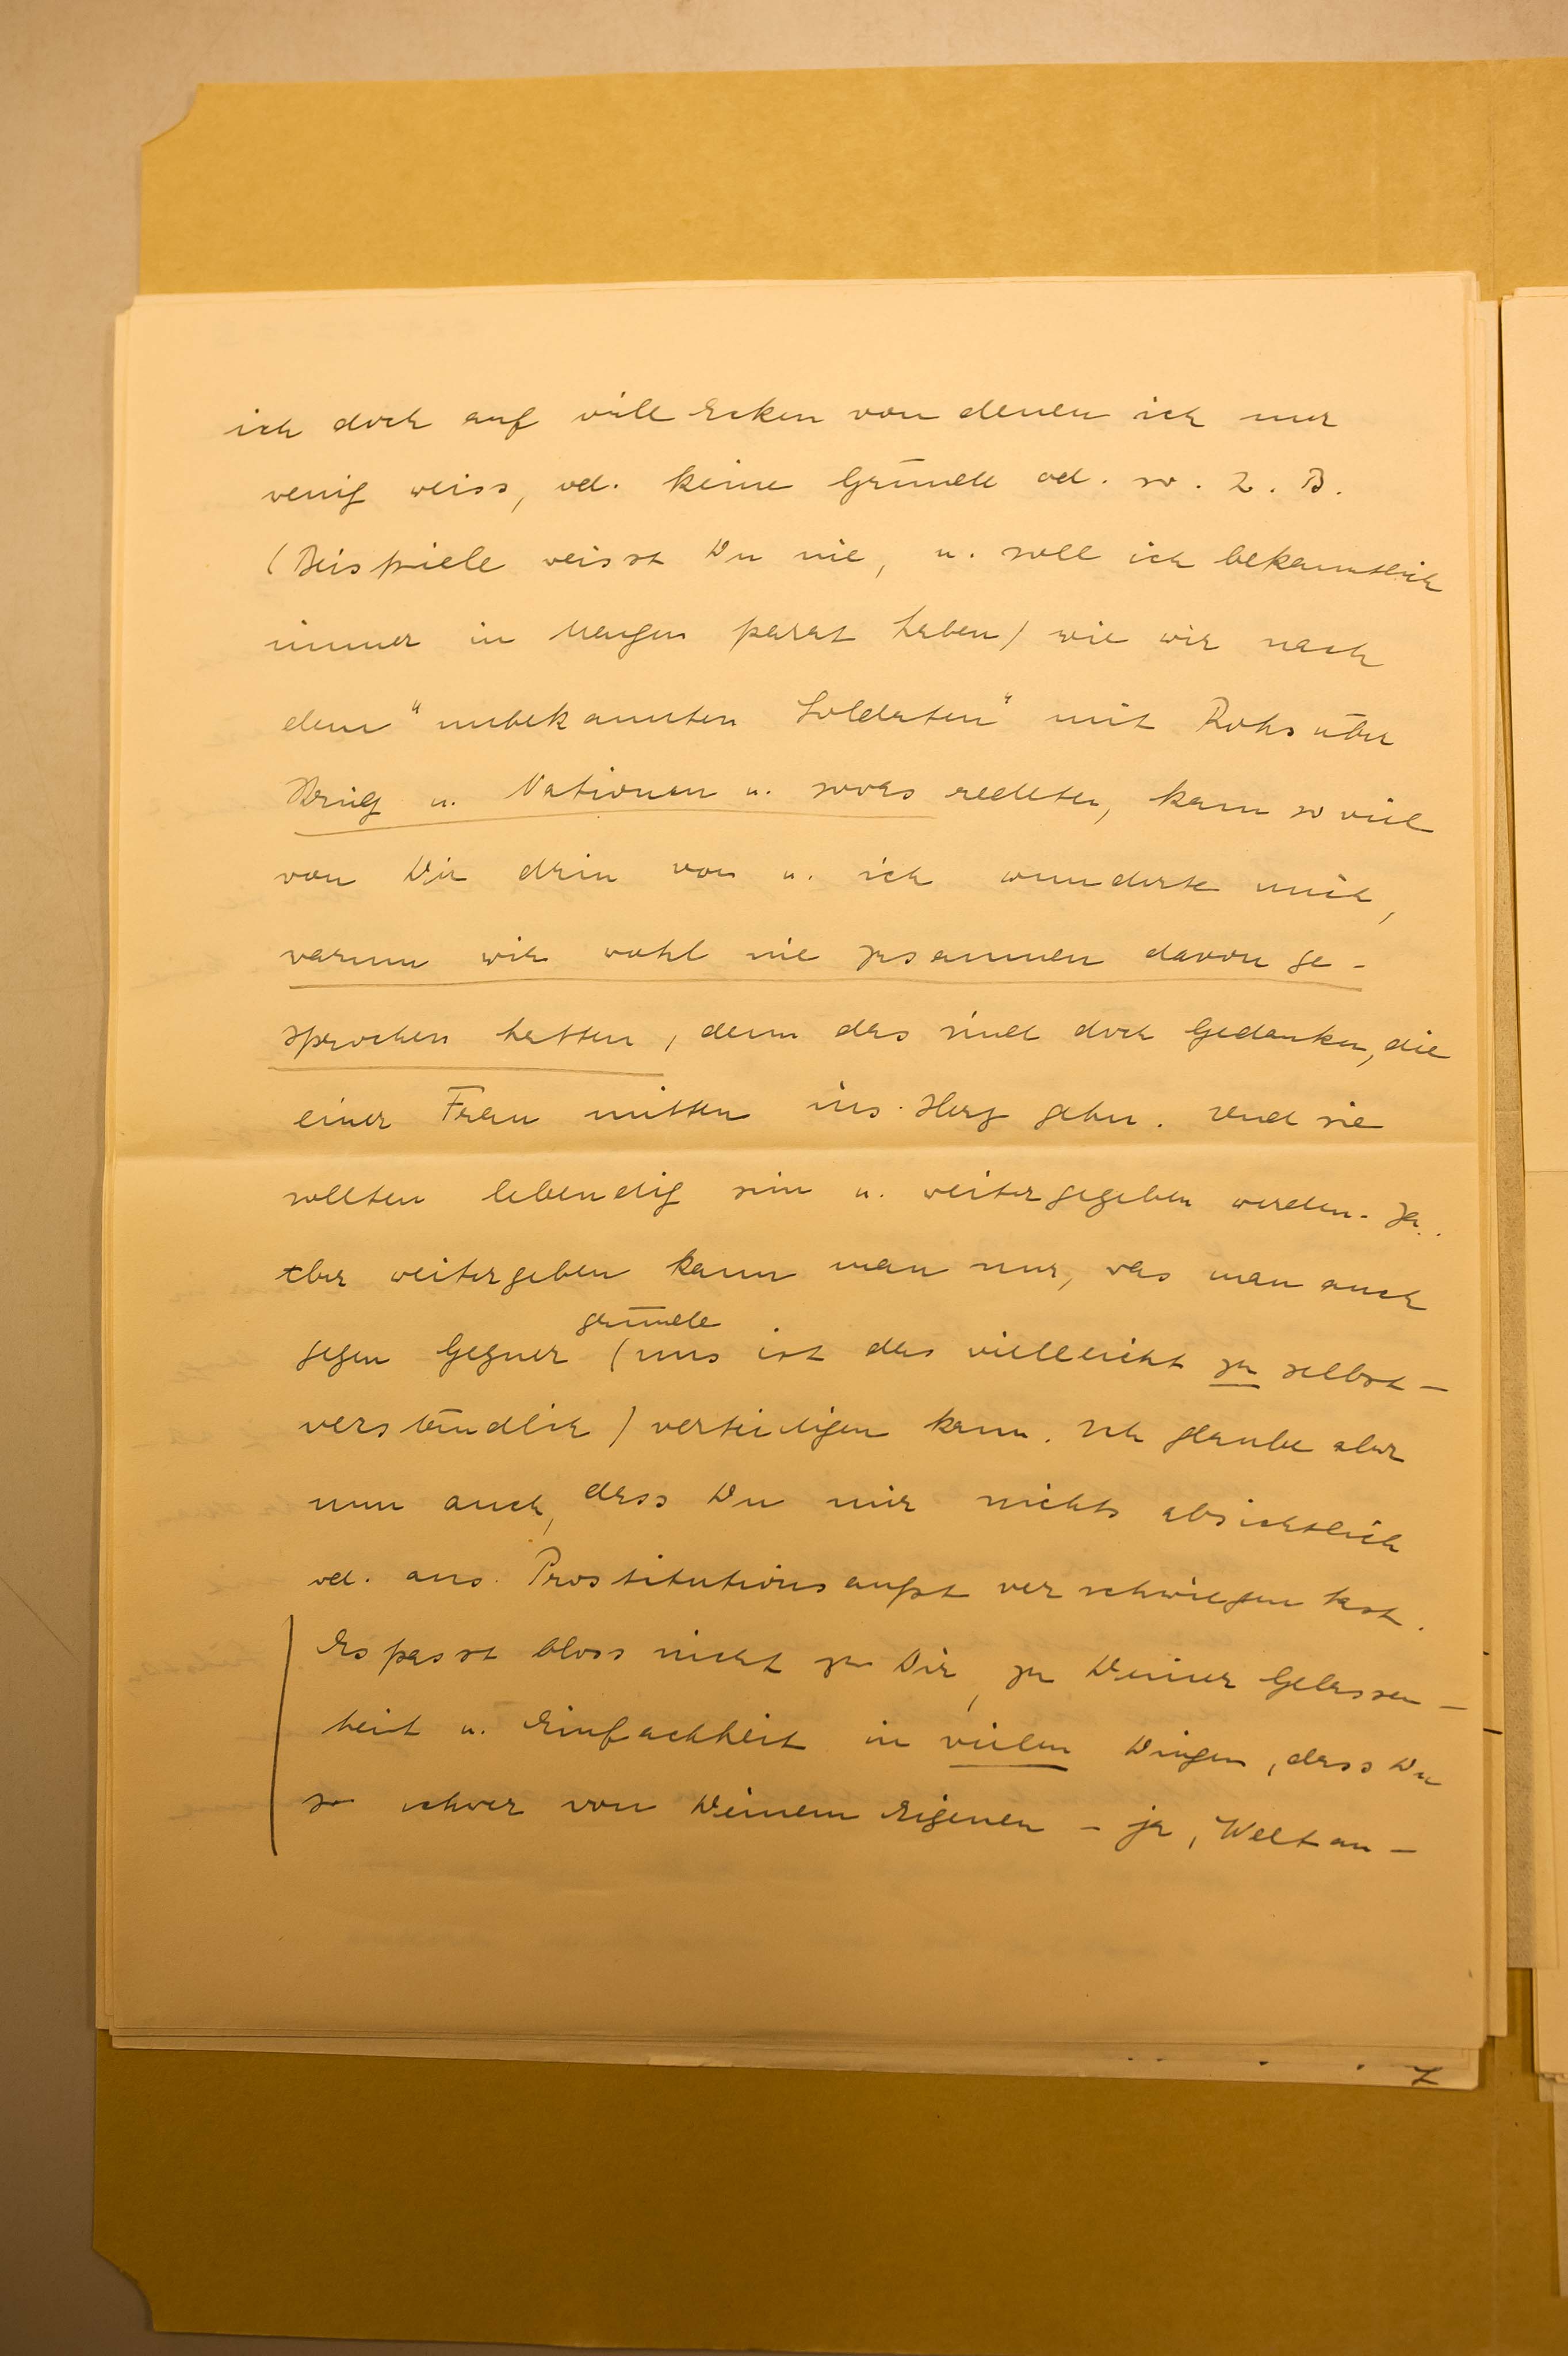 ich doch auf viele Ecken von denen ich nur
wenig weiss, od. keine Gründe od. so. Z. B.
(Beispiele weisst Du nie, u. soll ich bekanntlich
immer in Mengen parat haben) wie wir nach
dem "unbekannten Soldaten" mit Rohs über
Krieg u. Nationen u. sowas redeten, kam so viel
von Dir drin vor u. ich wunderte mich,
warum wir wohl nie zusammen davon ge-
sprochen hatten, denn das sind doch Gedanken, die
einer Frau mitten ins Herz gehn. Und sie
sollten lebendig sein u. weitergegeben werden. Ja.
Aber weitergeben kann man nur, was man auch
gründe
gegen Gegner (uns ist das vielleicht zu selbst-
verständlich) verteidigen kann. Ich glaube aber
nun auch, dass Du mir nichts absichtlich
od. aus Prostitutionsangst verschwiegen hast.
Es passt bloss nicht zu Dir, zu Deiner Gelassen-
heit u. Einfachheit in vielen Dingen, dass Du
so schwer von Deinem Eigenen - ja, Weltan-